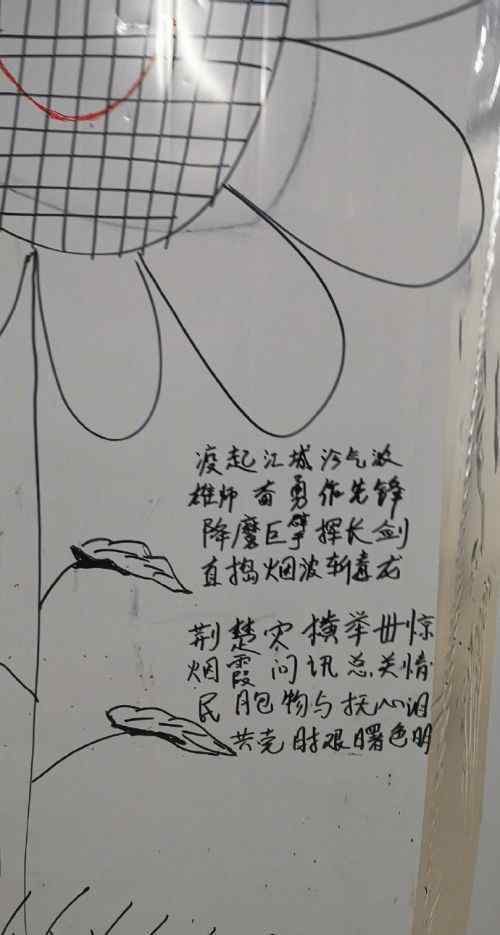 疫起江城沴气浓
雄师奋勇作先锋
降魔巨擘挥长剑
直捣烟波斩毒龙
荆楚灾横举世惊
烟霞问讯总关情
民胞物与抚心泪
共克时艰曙色明